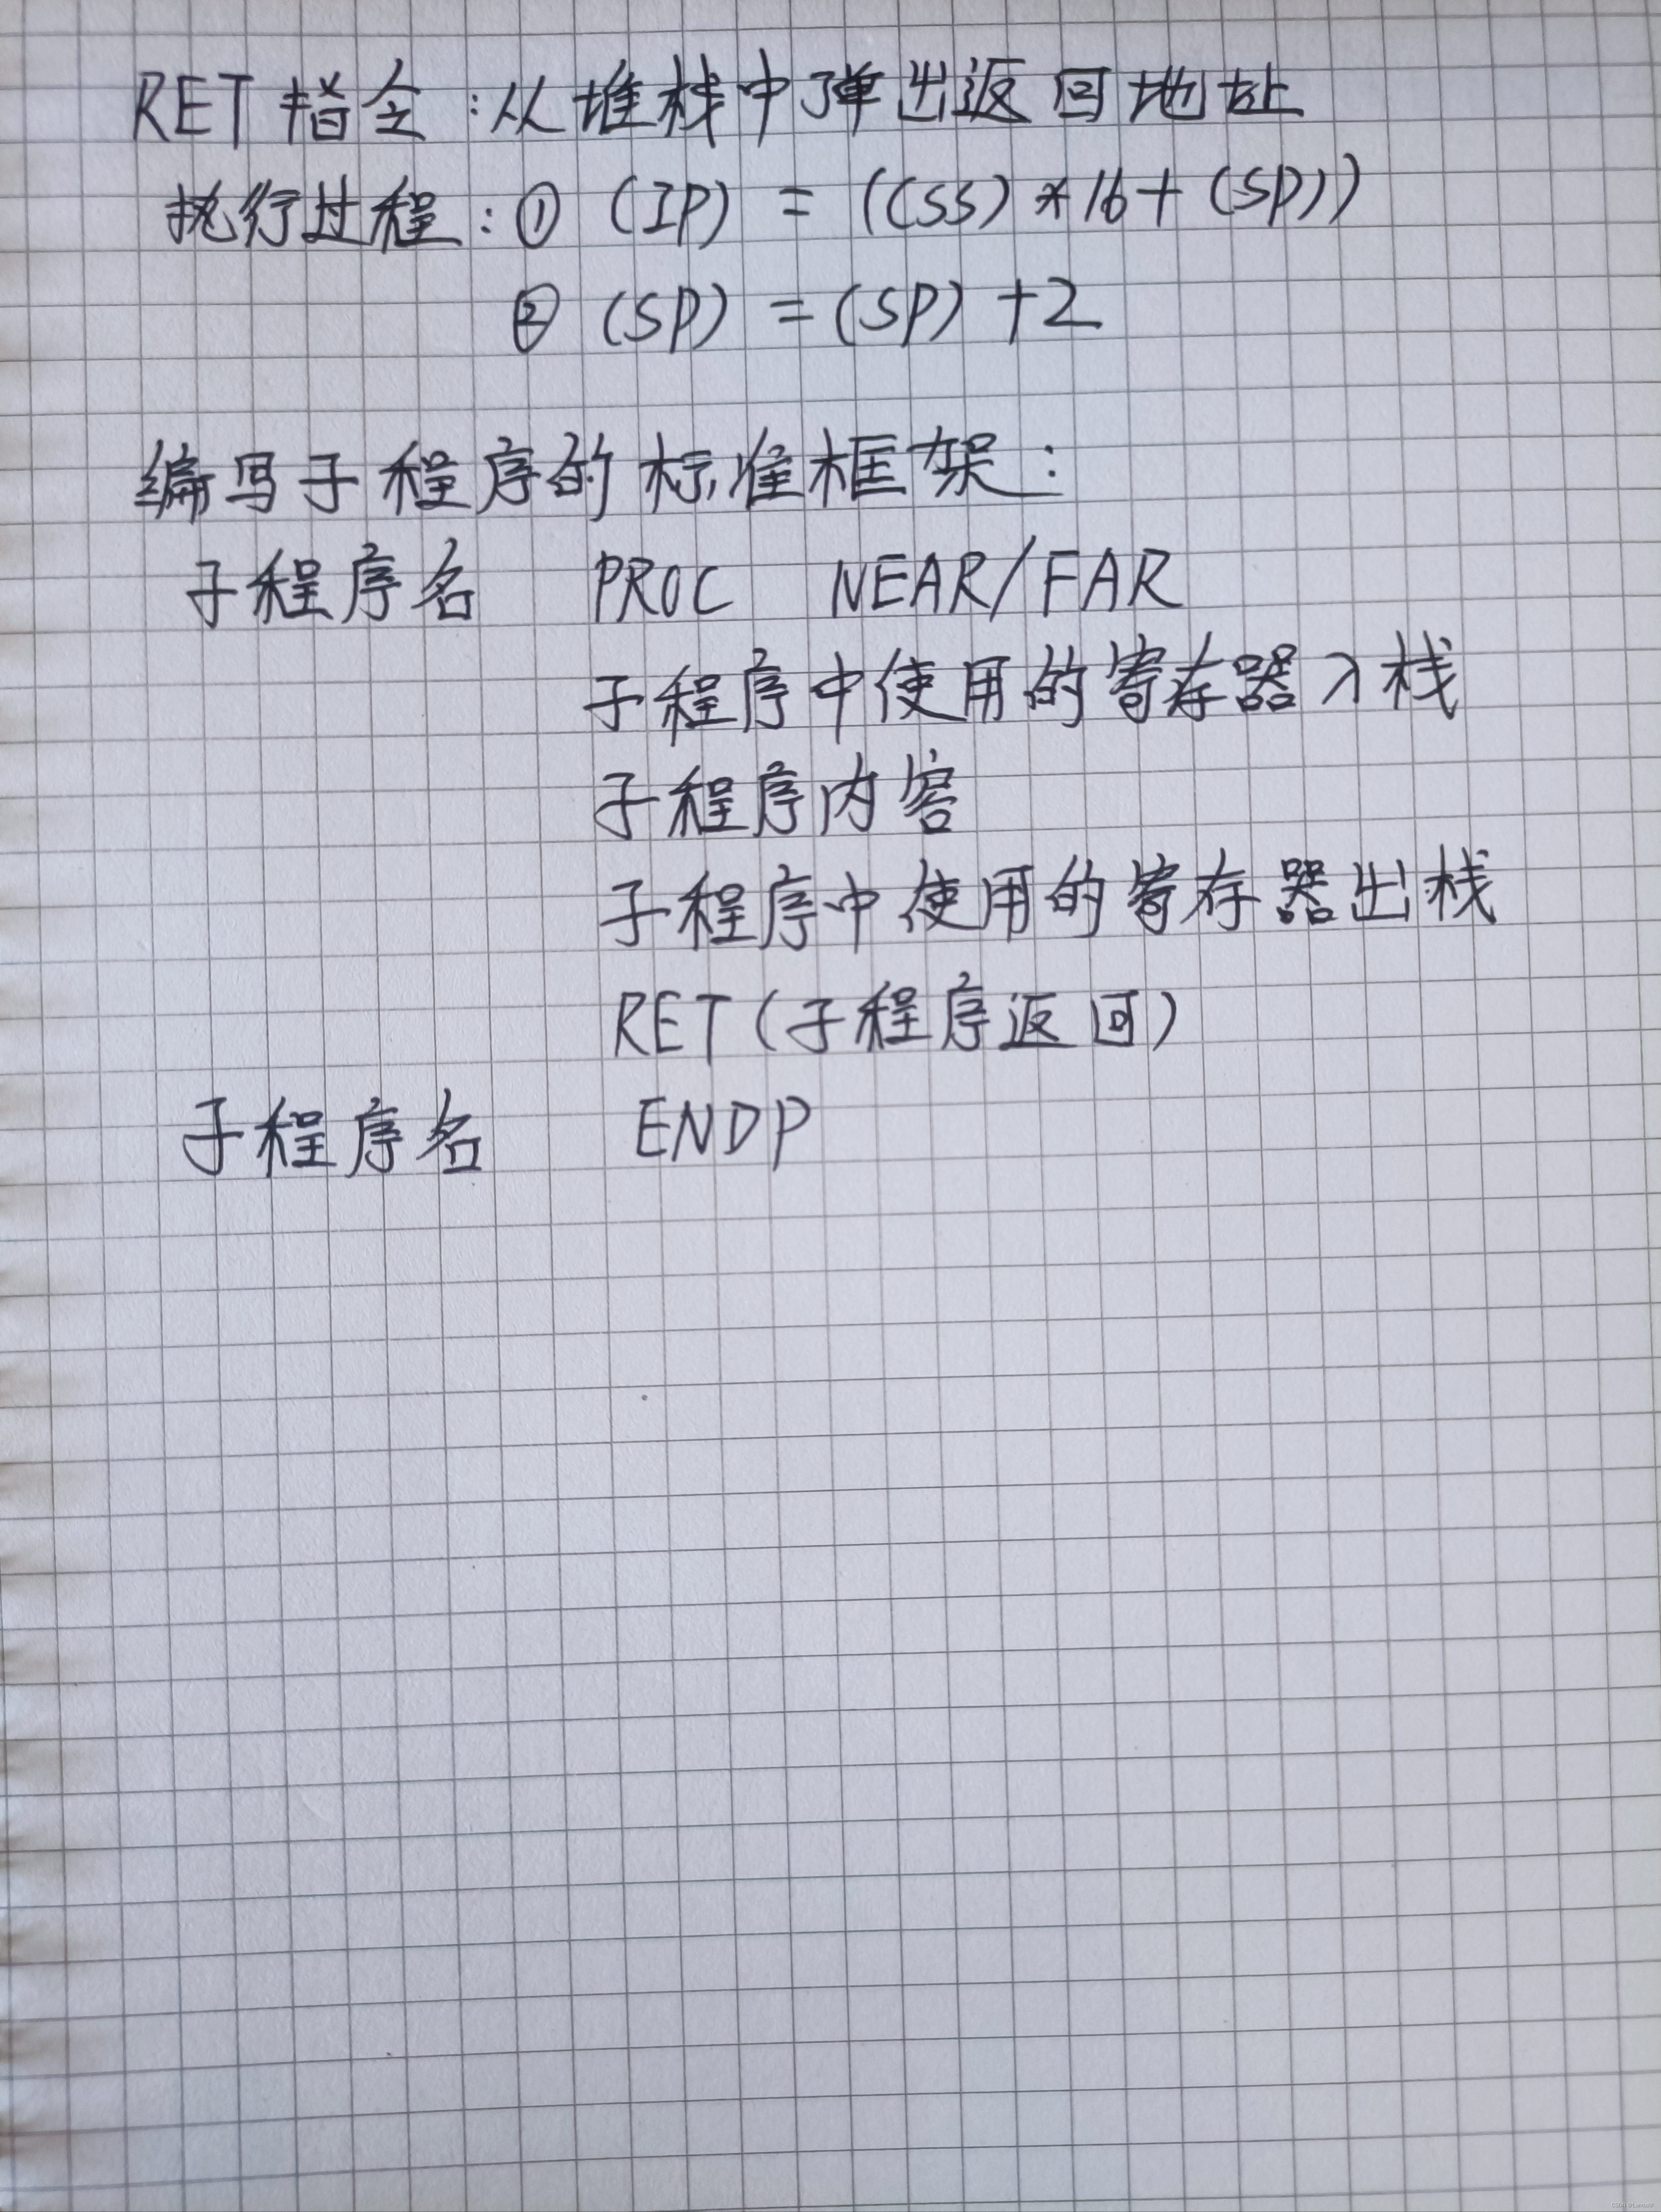 RET 指令:从堆栈中弹出返回地址
执行过程:① (IP) = ((SS) *16+ (SP))
② (SP) =(SP) +2
编写子程序的标准框架:
子程序名 PROC NEAR/FAR
子程序中使用的寄存器入栈
子程序内容
子程序中使用的寄存器出栈
RET(子程序返回)
子程序名 ENDP